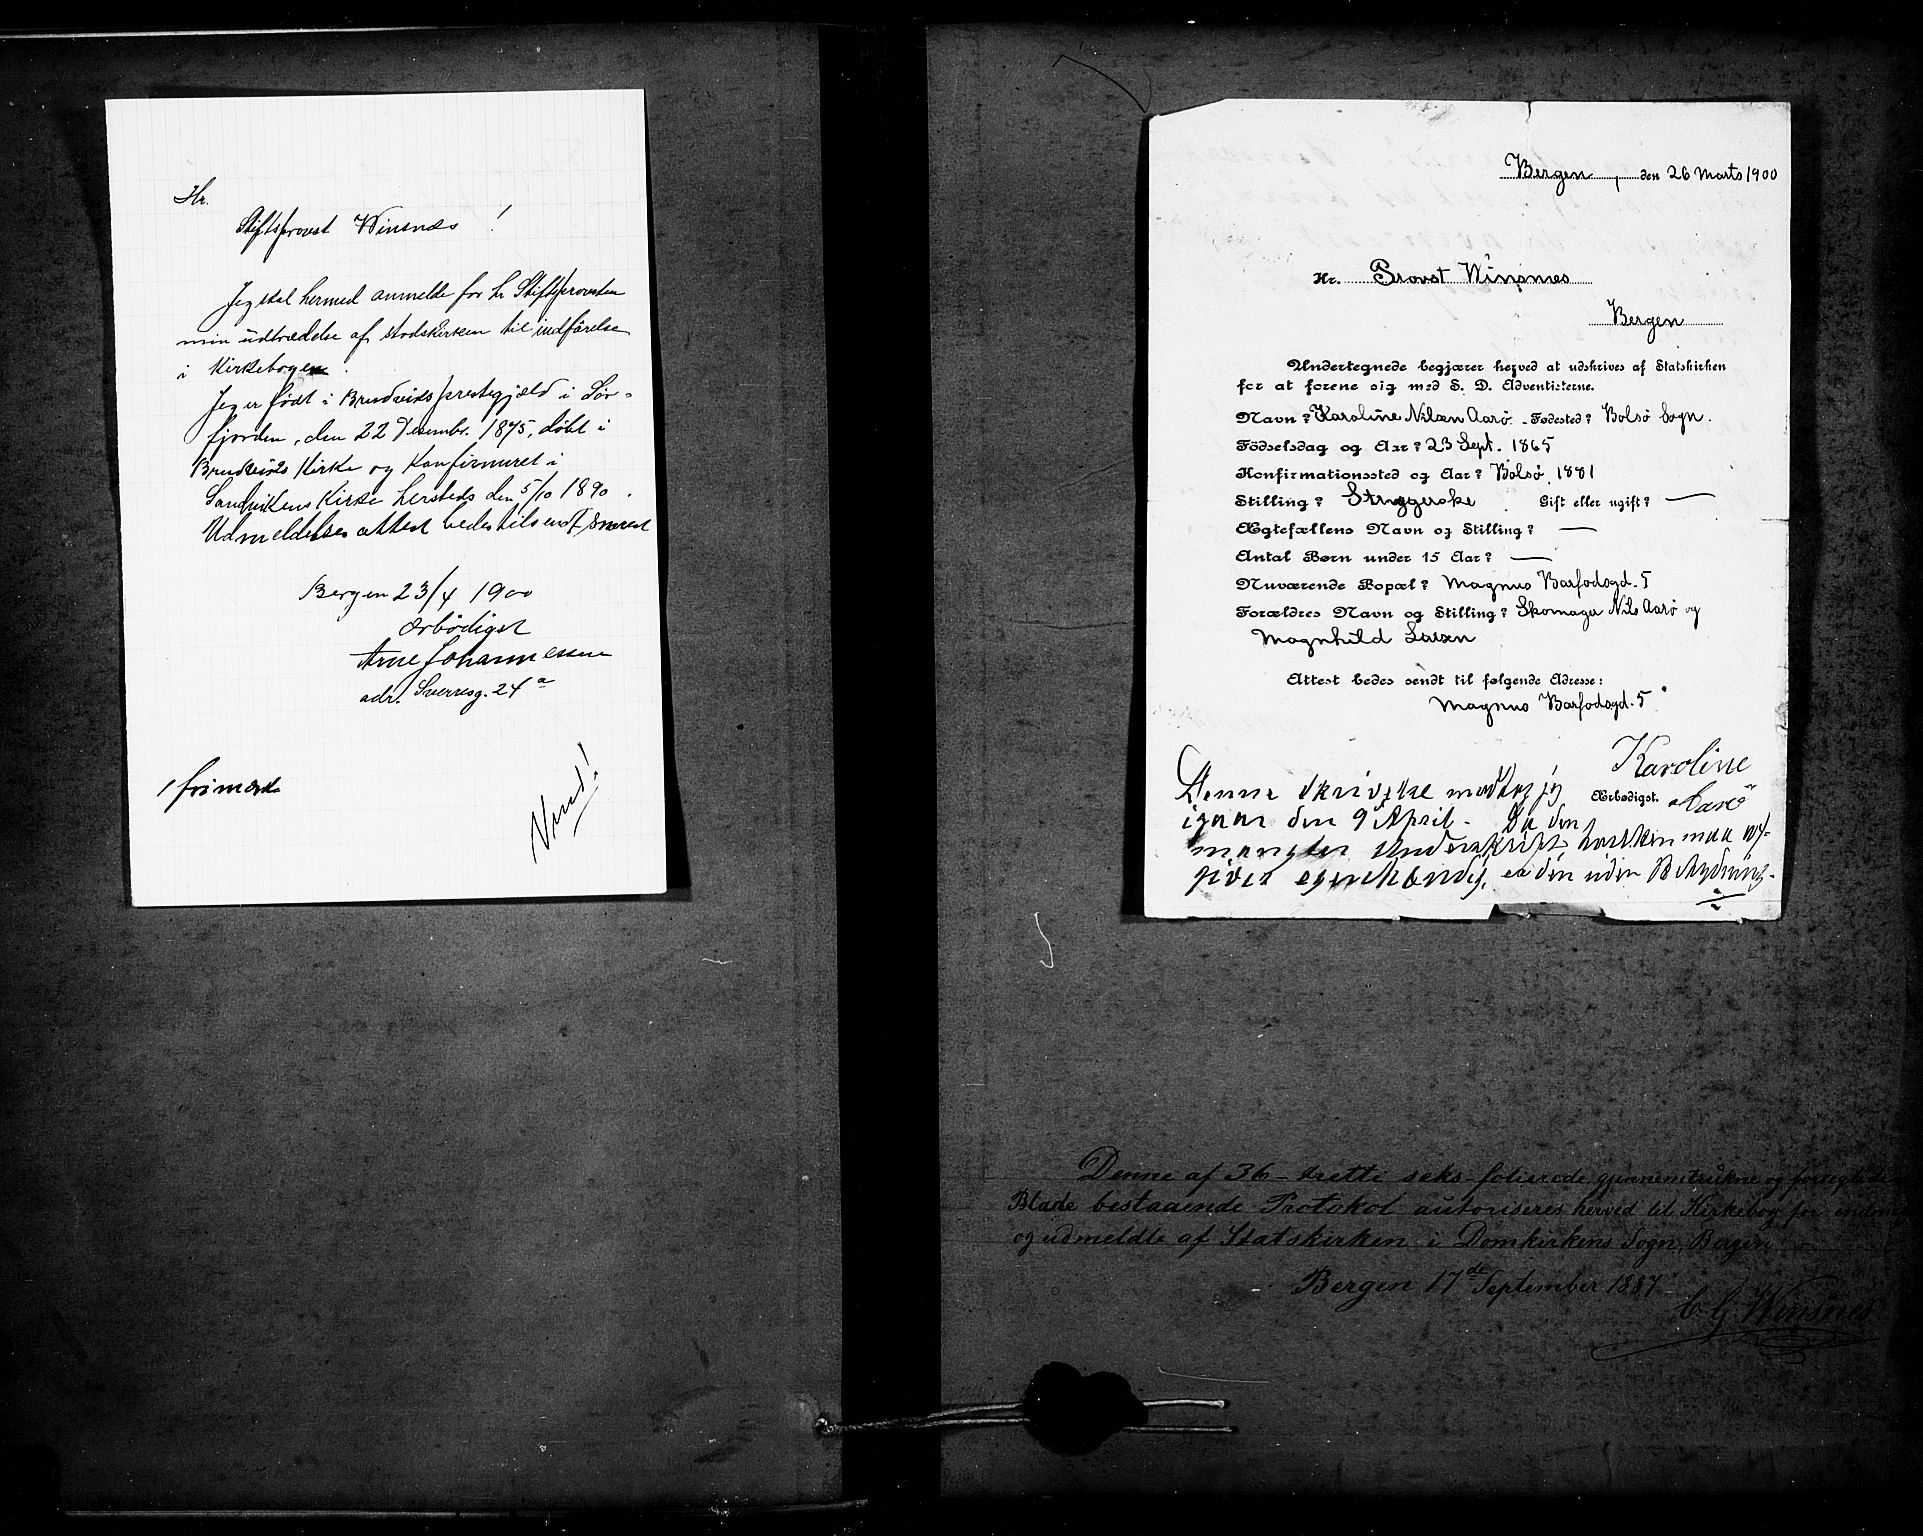 Hr.
Stiftsprovst Winsnæs!
Jeg skal hermed anmelde for hr Stiftsprovsten
min udtrædelse af stadskirken til indførelse
i Kirkebogen.
Jeg er født i Bruvigs prestegjæld i Sør-
fjorden, den 22 Desembr. 1875, døbt i
Kirke og Konfirmeret i
Sandvikens Kirke hersteds den 5/10 1890.
Udmeldelses attest bedes tilsendt snarest
Bergen 23/4 1900
Ærbødigst
Arne Johannessen
adr. Sverresg. 24 a
1 frimærke
Vend!
Bergen, den 26 Marts 1900
Hr. Provst Winsnes
Bergen
Undertegnede begjærer herved at udskrives af Statskirken
for at forene sig med S. D. Adventisterne.
Navn? Karoline Nilsen Aarö. Fødested? Bolsö Sogn.
Födselsdag og Aar? 23 Sept. 1865
Konfirmationssted og Aar? Bolsö 1881
Stilling? Strygerske Gift eller ugift? —
Ægtefællens Navn og Stilling? —
Antal Børn under 15 Aar? —
Nuværende Bopæl? Magnus Barfodsgd. 5
Forældres Navn og Stilling? Skomager Nils Aarö og
Magnhild Larsen
Attest bedes sendt til følgende Adresse:
Magnus Barfodsgd. 5
Karoline
Ærbødigst. Aarö
Denne Skrivelse modtog jeg
igaar den 9 April. Da den
mangler Underskrift, hvilken maa af-
gives egenhændig, er den uden Betydning.
Denne af 36 - tretti seks - folierede gjennemtrukne og forseglede
Blade bestaaende Protokol autoriseres herved til Kirkebog for
og udmeldte af Statskirken i Domkirkens Sogn, Bergen
Bergen 17de September 1887
C. G. Winsnes